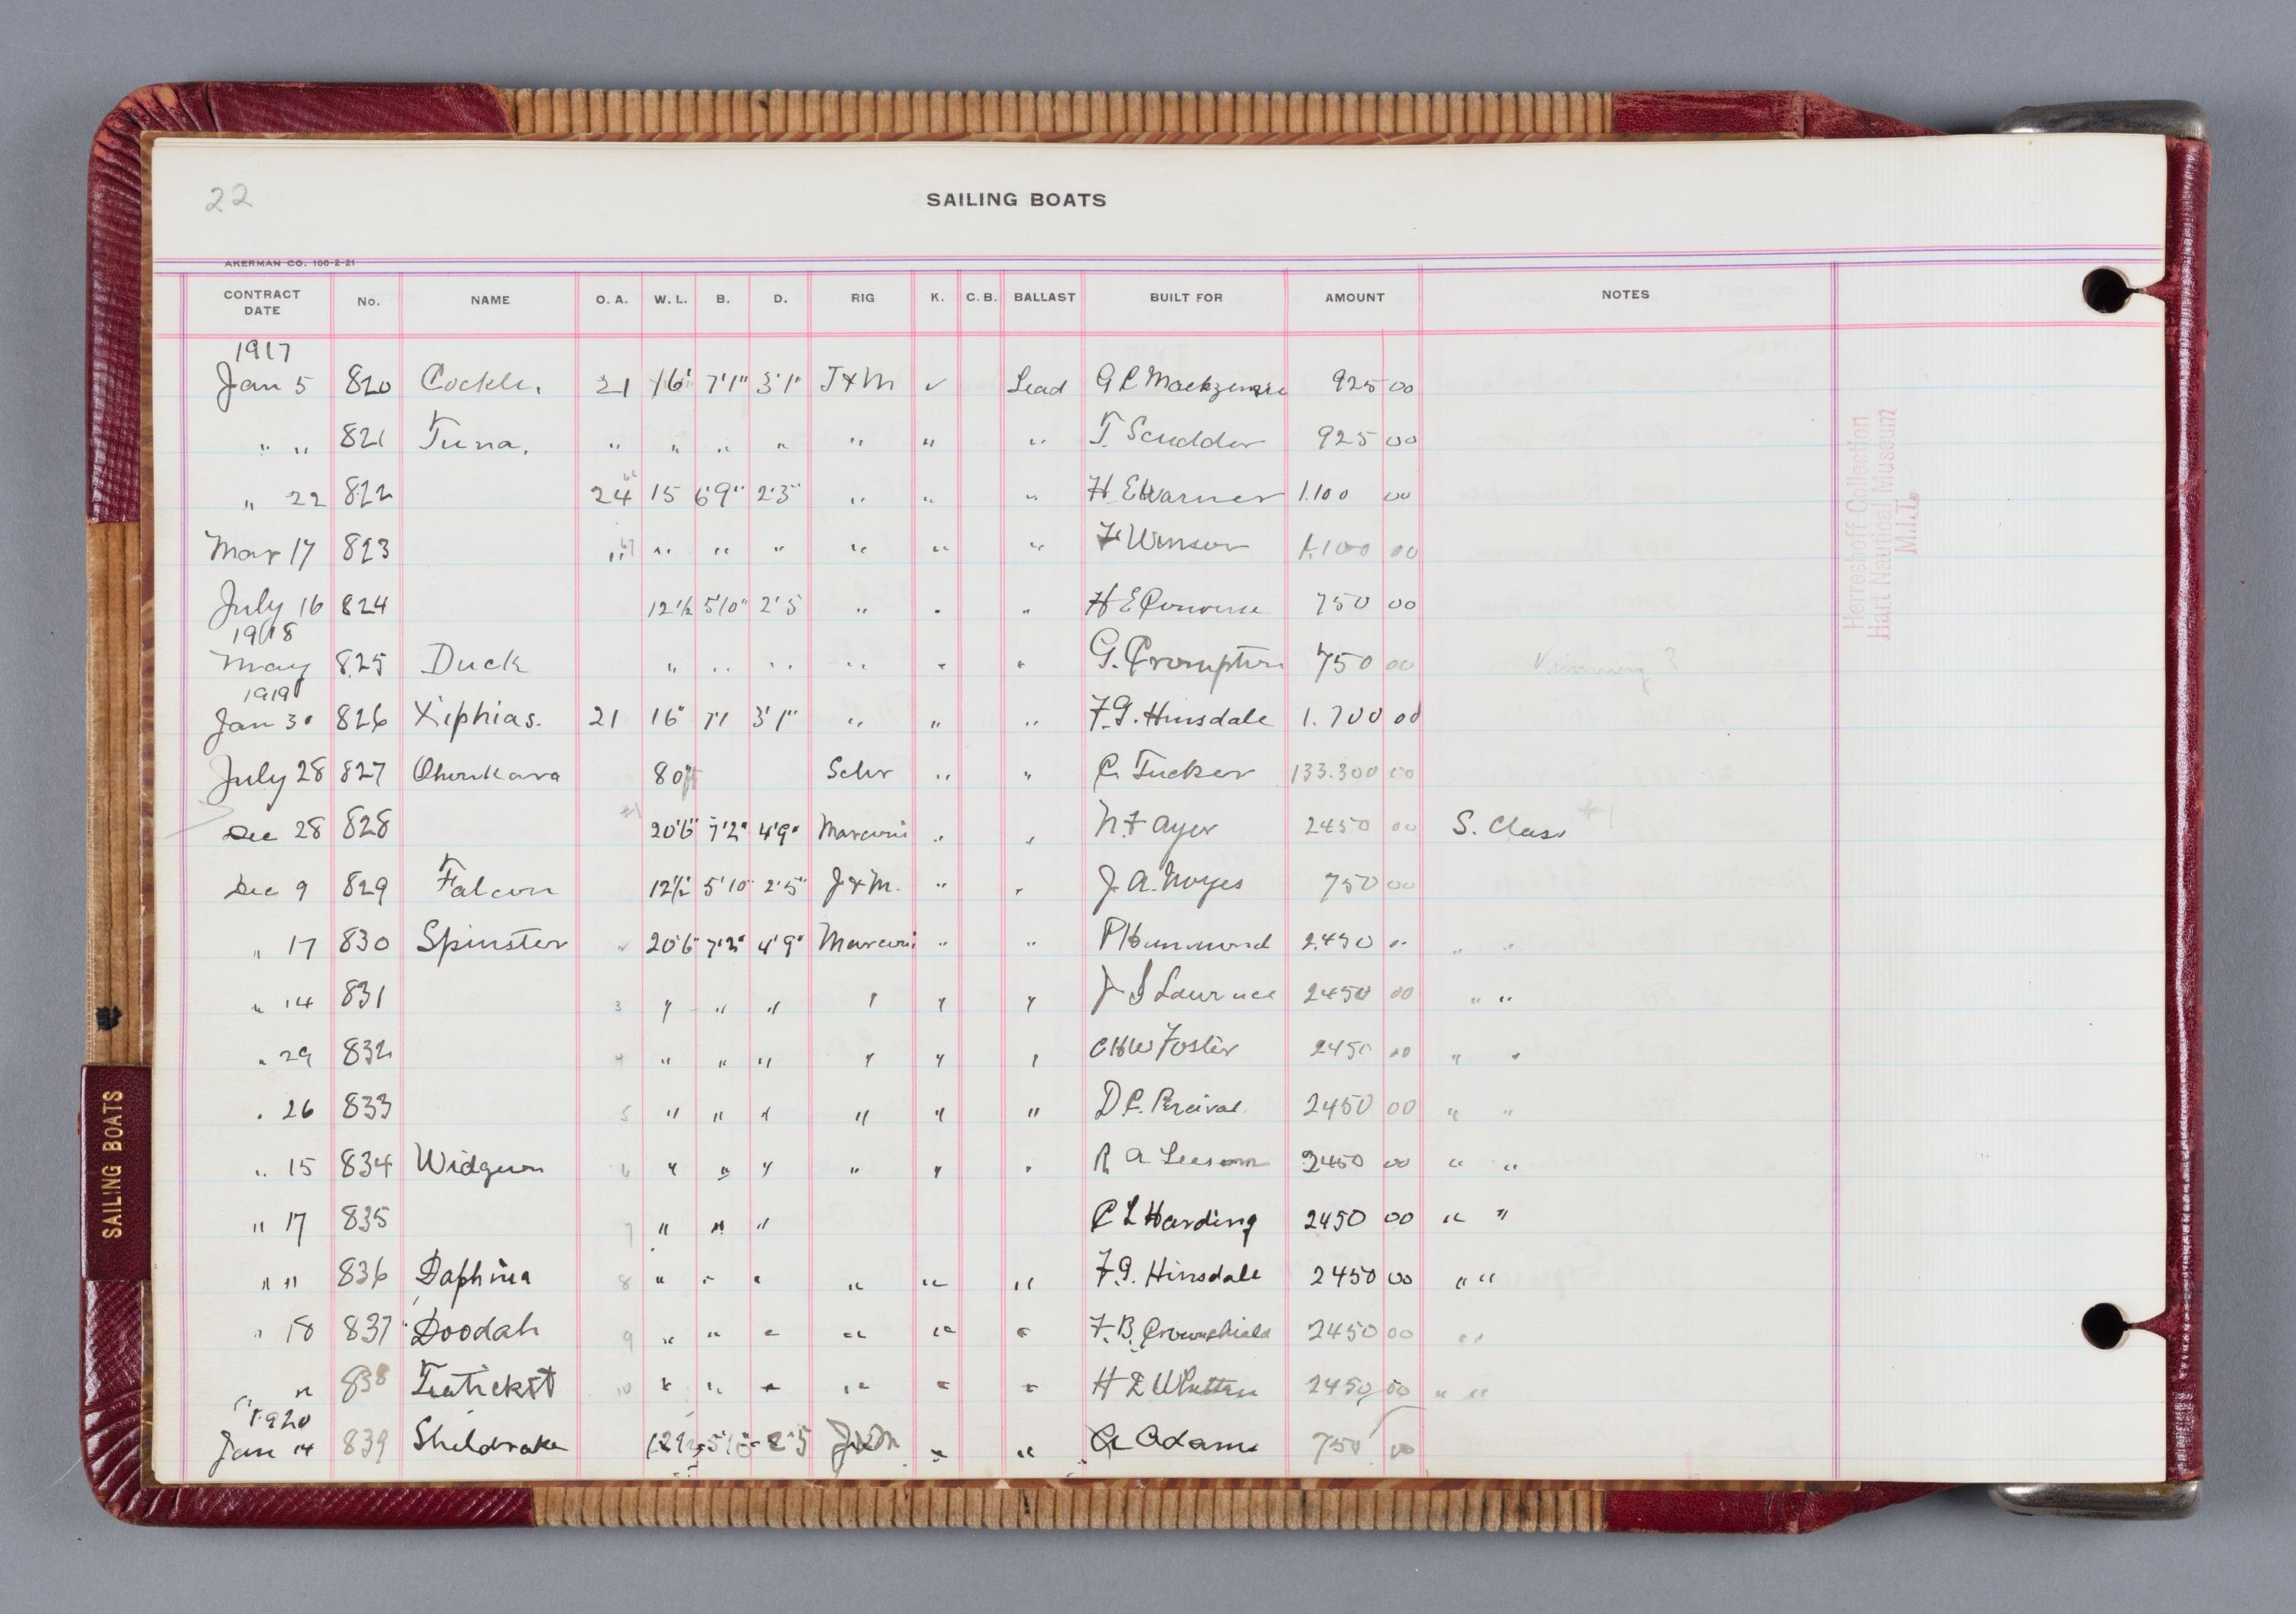 22
SAILING BOATS
AKERMAN CO. 100-2-21
CONTRACT DATE No. NAME O. A. W. L. B. D. RIG K. C. B. BALLAST BUILT FOR AMOUNT NOTES
1917
Jan 5 820 Cockle. 21 16' 7'1" 3'1" J & M ✓ Lead 925 00
" " 821 Tuna. " " " " " " " T. Scudder 925 00
" 22 822 24 15 6'9" 2'3" " " " H E Warner 1.100 00
Mar 17 823 " " " " " " " F Winsor 1.100 00
July 16 824 12 1/2 5'10" 2'5 " " " H E Converse 750 00
1918
May 825 Duck " " " " " " G. Crompton 750 00
1919
Jan 30 826 Xiphias. 21 16" 7'1 3'1" " " " F. G. Hinsdale 1.700 00
July 28 827 Ohonkara 80 ft Schr " " C. Tucker 133.300 00
Dec 28 828 #1 20'6" 7'2" 4'9" Marconi " " N. F Ayer 2450 00 S. Class #1
Dec 9 829 Falcon 12 1/2 5'10" 2'5" J & M. " " J. A. Noyes 750 00
" 17 830 Spinster 20'6" 7'2" 4'9" Marconi " " P Hammond 2.450 " " "
" 14 831 3 " " " " " " J S Lawrence 2450 00 " "
" 29 832 4 " " " " " " C H W Foster 2450 00 " "
" 26 833 5 " " " " " " D C. Percival. 2450 00 " "
" 15 834 Widgeon 6 " " " " " " R A Leeson 2450 00 " "
" 17 835 7 " " " C L Harding 2450 00 " "
" " 836 Daphnia 8 " " " " " " F. G. Hinsdale 2450 00 " "
" 18 837 Doodah 9 " " " " " " F. B. Crowninshield 2450 00 "
" " 838 10 " " " " " " H D Whitten 2450 00 " "
1920
Jan 14 839 Sheldrake 12 1/2 5'10" 2'5 J & M " " Adams 750 00
Herreshoff Collection
Hart Nautical Museum
M.I.T.
SAILING BOATS